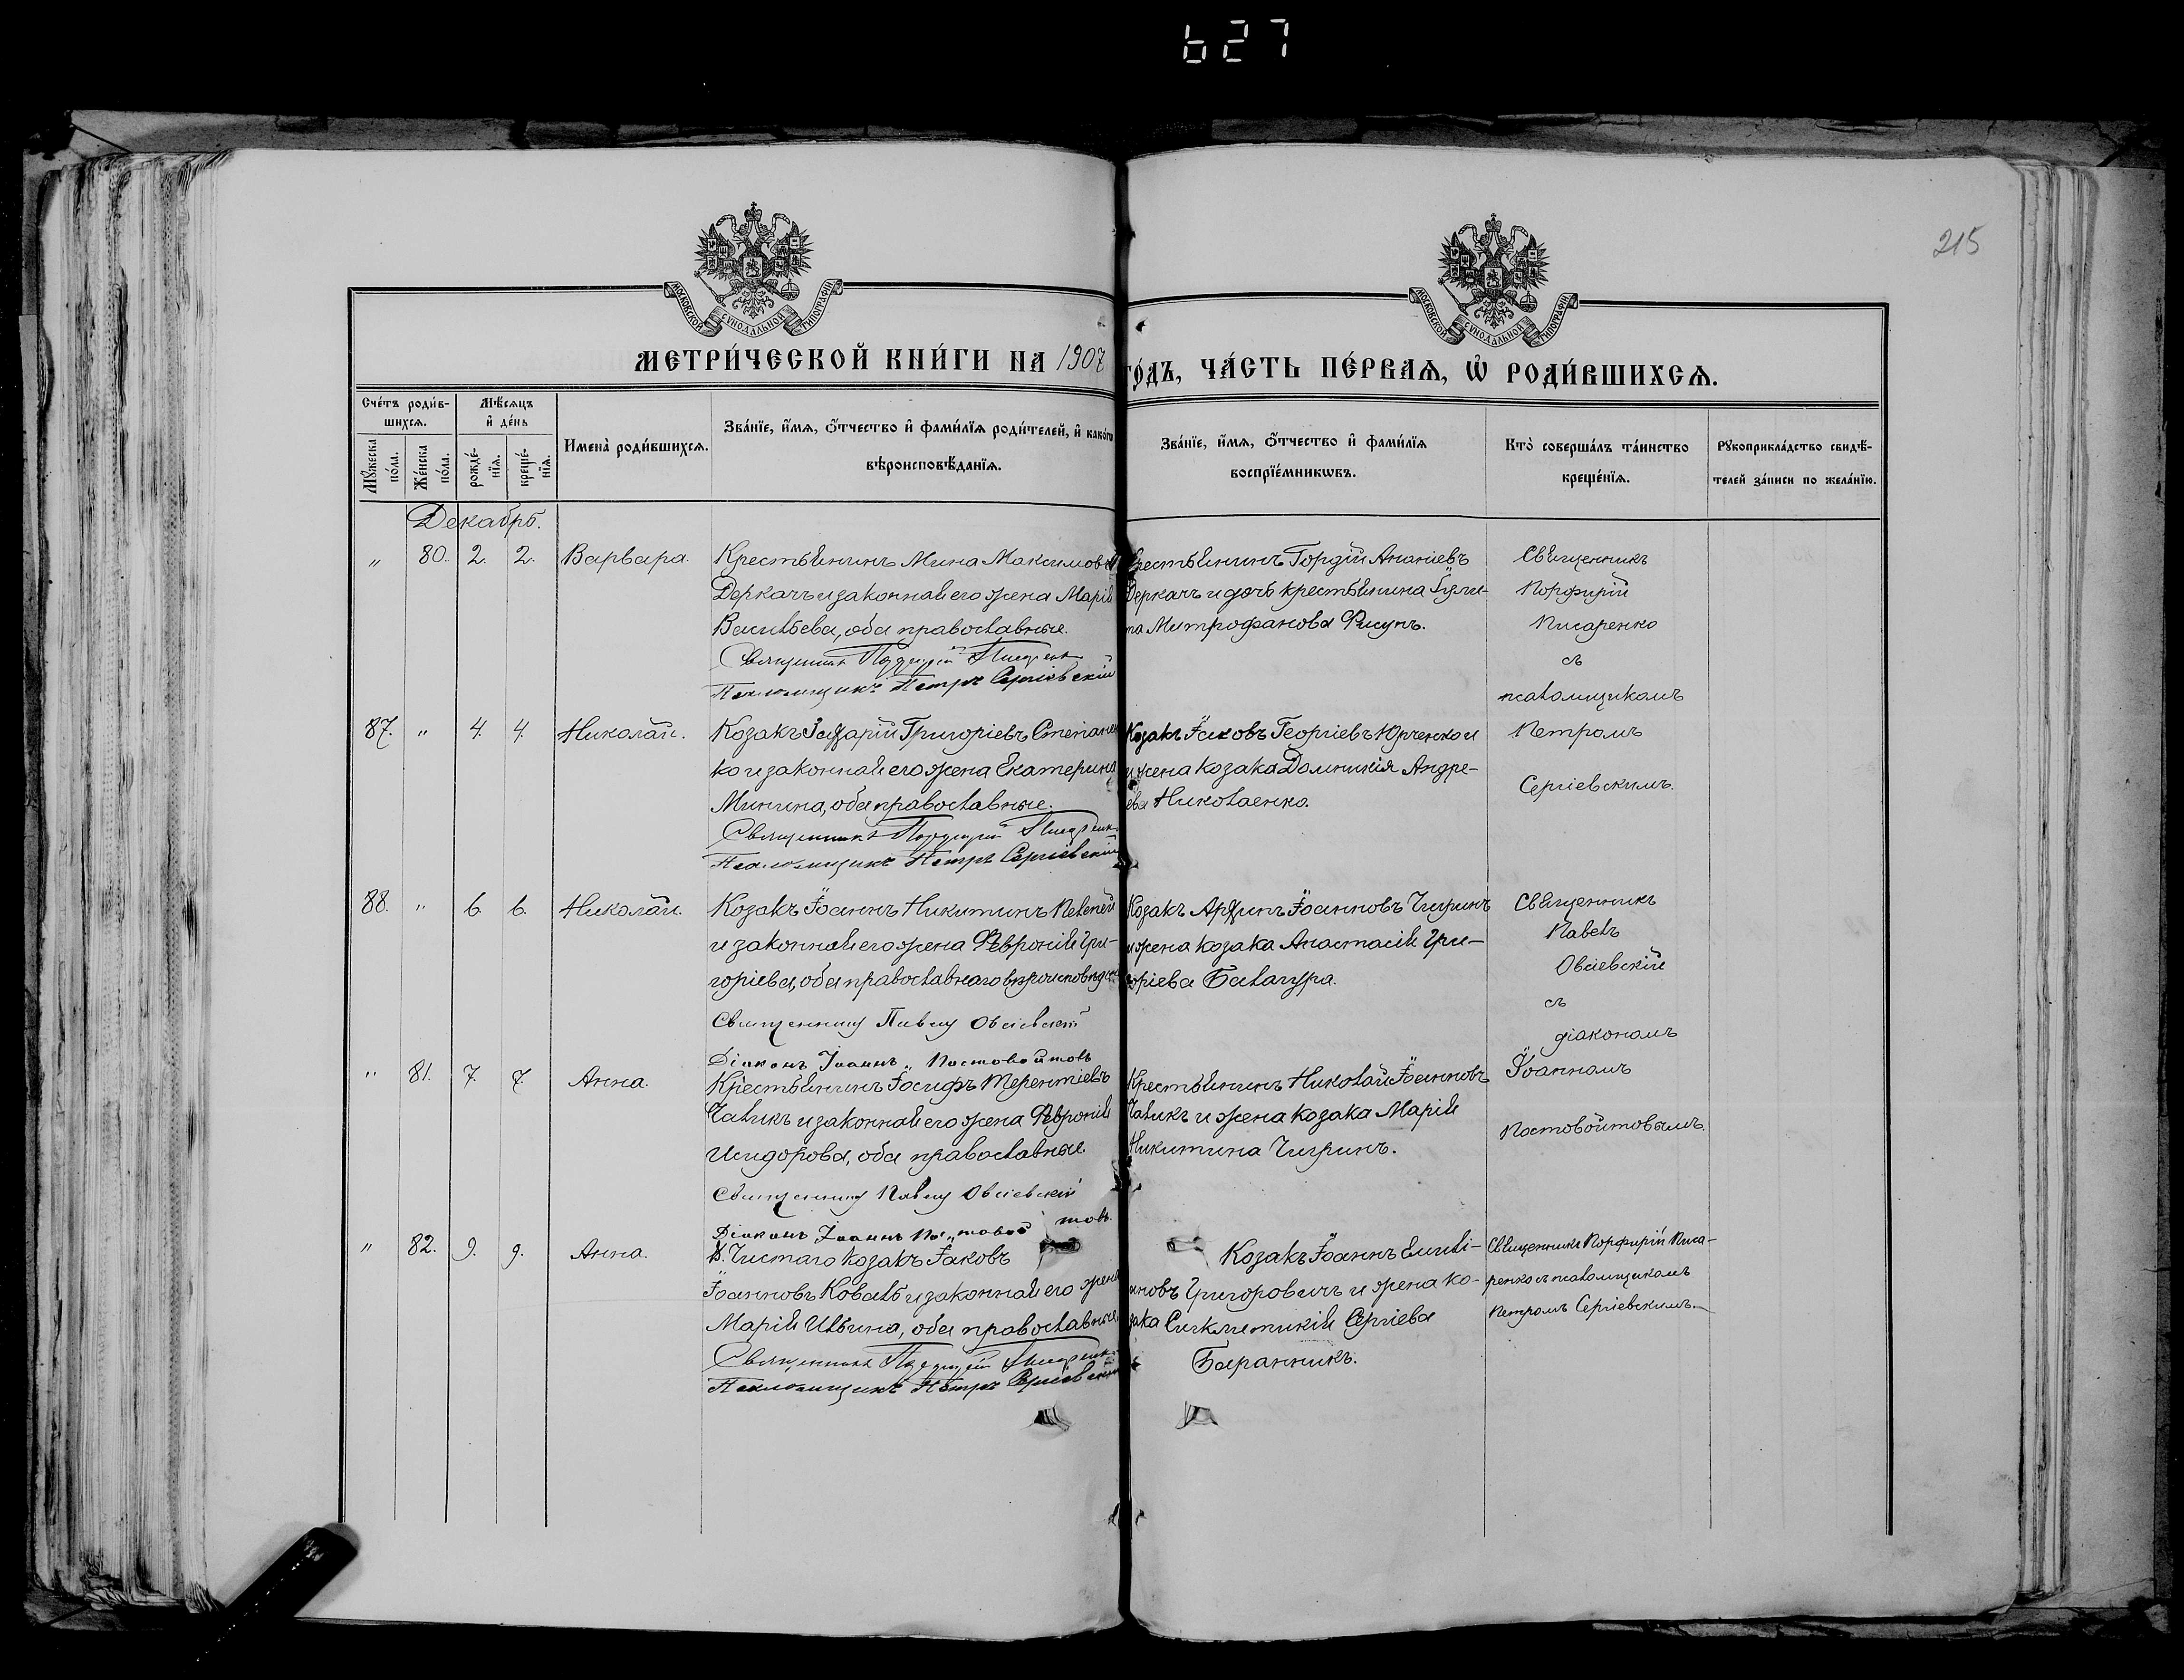 627
215
МОСКОВСКОЙ СѴНОДАЛЬНОЙ ТИПОГРАФІИ
МОСКОВСКОЙ СѴНОДАЛЬНОЙ ТИПОГРАФІИ
МЕТРИ́ЧЕСКОЙ КНИ́ГИ НА 1907 ГО́ДЪ, ЧА́СТЬ ПЕ́РВАѦ, Ѽ РОДИ́ВШИХСѦ.
Сче́тъ роди́в-
шихсѧ.
Мꙋ́жеска по́ла.
Же́нска по́ла.
Мѣ́сѧцъ
и҆ де́нь
рожде́-
нїѧ.
креще́-
нїѧ.
Имена̀ роди́вшихсѧ.
Зва́нїе, и҆́мѧ, ѻ҆́тчество и҆ фами́лїѧ роди́телей, и҆ како́гѡ
вѣроисповѣ́данїѧ.
Зва́нїе, и҆́мѧ, ѻ҆́тчество и҆ фами́лїѧ
воспрїе́мникωвъ.
Кто̀ соверша́лъ та́инство
креще́нїѧ.
Рꙋкоприкла́дство свидѣ́-
телей за́писи по жела́нїю.
Декабрь.
" 80. 2. 2. Варвара.
Крестьянинъ Мина Максимовъ
Деркачъ и законная его жена Марія
Васильева, оба православные.
Священникъ Порфирій Писаренко
Псаломщикъ Петръ Сергіевскій
Крестьянинъ Гордій Ананіевъ
Деркачъ и дочь крестьянина Іули-
та Митрофанова Рисунъ.
Священникъ
Порфирій
Писаренко
съ
псаломщикомъ
Петромъ
Сергіевскимъ.
87. " 4. 4. Николай.
Козакъ Захарій Григоріевъ Степанен
ко и законная его жена Екатерина
Минина, оба православные.
Священникъ Порфирій Писаренко
Псаломщикъ Петръ Сергіевскій
Козакъ Іаковъ Георгіевъ Юрченко и
и жена козака Домникія Андре-
ева Николаенко.
88. " 6. 6. Николай.
Козакъ Іоаннъ Никитинъ Пелепей
и законная его жена Февронія Гри-
горіева, оба православнаго вѣроисповѣдан
Священникъ Павелъ Овсіевскій
Діаконъ Іоаннъ Постовойтовъ
Козакъ Архипъ Іоанновъ Чигринъ
и жена козака Анастасія Гри-
горіева Балагура.
Священникъ
Павелъ
Овсіевскій
съ
діакономъ
Іоанномъ
Постовойтовымъ.
" 81. 7. 7. Анна.
Крестьянинъ Іосифъ Терентіевъ
Чаликъ и законная его жена Февронія
Исидорова, оба православные
Священникъ Павелъ Овсіевскій
Діаконъ Іоаннъ Постовойтовъ.
Крестьянинъ Николай Іоанновъ
Чаликъ и жена козака Марія
Никитина Чигринъ.
" 82. 9. 9. Анна.
Д. Чистаго козакъ Іаковъ
Іоанновъ Коваль и законная его жена
Марія Ильина, оба православные
Священникъ Порфирій Писаренко
Псаломщикъ Петръ Сергіевскій
Козакъ Іоаннъ Емилі-
ановъ Григоровичъ и жена ко-
зака Сигклитикія Сергіева
Баранникъ.
Священникъ Порфирій Писа-
ренко съ псаломщикомъ
Петромъ Сергіевскимъ.